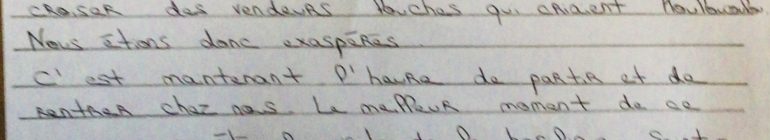 croiser des vendeurs louches qui criaient
Nous étions donc exaspérés
C'est mantenant l'heure de partir et de
rentrer chez nous. Le meilleur moment de ce